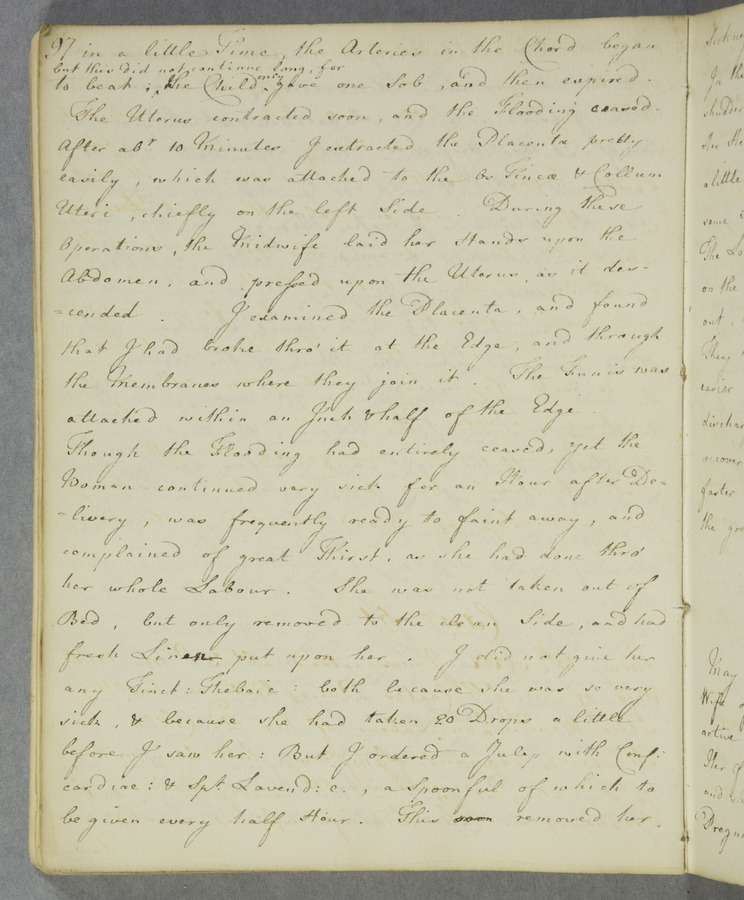 97 in a little Time, the Arteries in the Chord began
but this did not continue long, for
to beat ; the Child only gave one Sob, and then expired.
The Uterus contracted soon, and the Flooding ceased.
After abt 10 Minutes I extracted the Placenta pretty
easily, which was attached to the Os Tincæ & Collum
Uteri, chiefly on the left Side. During these
Operations, the Midwife laid her Hands upon the
Abdomen, and pressed upon the Uterus, as it des-
-cended. I examined the Placenta, and found
that I had broke thro' it at the Edge, and through
the Membranes where they join it. The Funis was
attached within an Inch & half of the Edge.
Though the Flooding had entirely ceased, yet the
Woman continued very sick for an Hour after De-
-livery, was frequently ready to faint away, and
complained of great Thirst, as she had done thro'
her whole Labour. She was not taken out of
Bed, but only removed to the clean Side, and had
fresh Linen put upon her. I did not give her
any Tinct: Thebaic: both because she was so very
sick, & because she had taken 20 Drops a little
before I saw her: But I ordered a Julep with Conf:
cardiac: & Spt. Lavend: c., a Spoonful of which to
be given every half Hour. This soon removed her
Sickn
In th
shudder
In the
a little
some
The Lo
on the
out,
They
earier
dischar
recover
faster
the gre
May
Wife
active
Her
and
Pregn